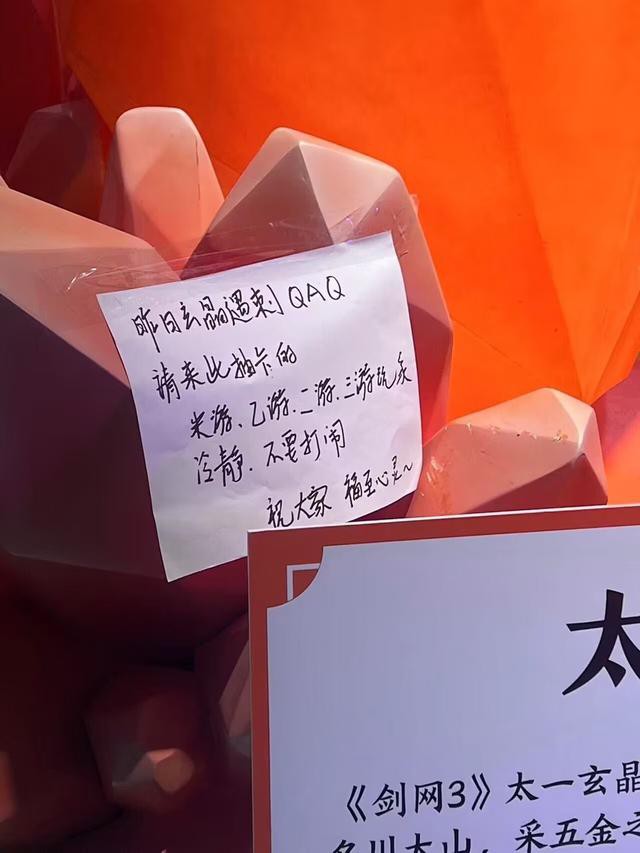 昨日玄晶遇刺QAQ
请来此抽卡的
米游、乙游、二游、三游玩家
冷静、不要打闹
祝大家 福至心灵~
太
《剑网3》太一玄晶
名川大山，采五金之